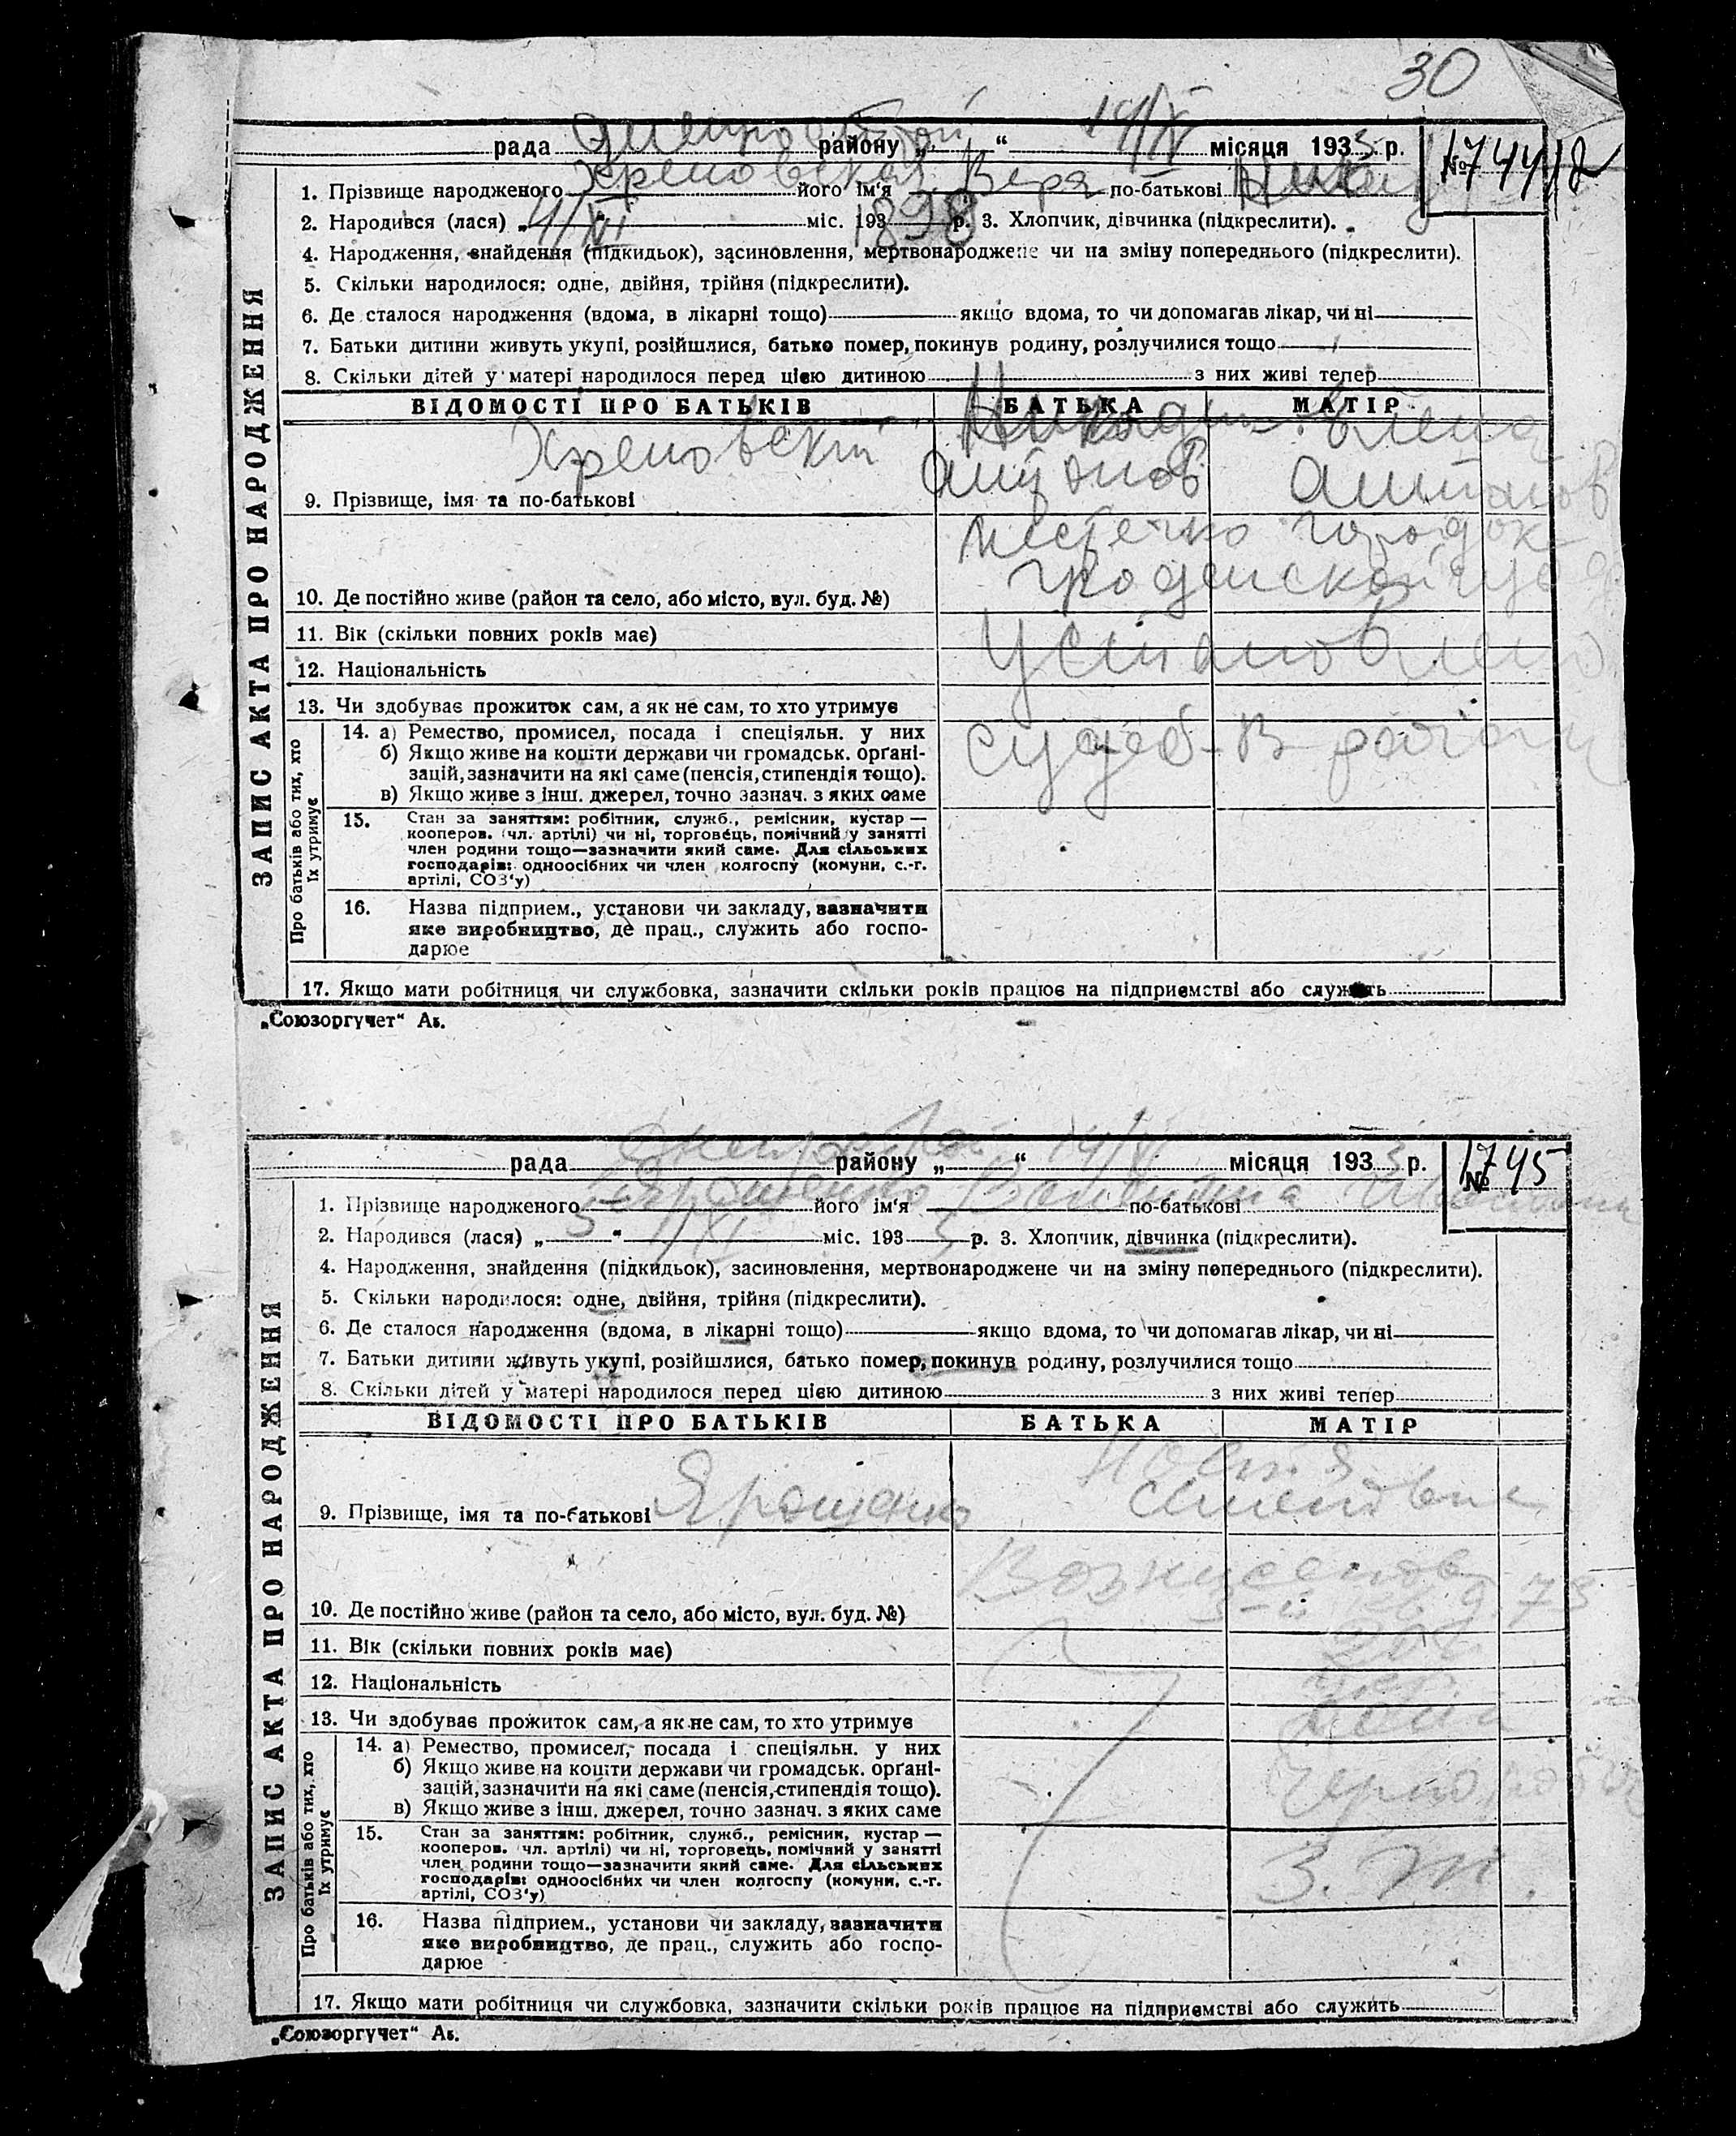 30
рада Днепрострой району „ “ 14/XI місяця 1933 р. № 1744/8
1. Прізвище народженого Хреновская його ім‘я Вера по-батькові
2. Народився (лася) „ 4/XI міс. 1898 р. 3. Хлопчик, дівчинка (підкреслити).
4. Народження, знайдення (підкидьок), засиновлення, мертвонароджене чи на зміну попереднього (підкреслити).
5. Скільки народилося: одне, двійня, трійня (підкреслити).
6. Де сталося народження (вдома, в лікарні тощо) якщо вдома, то чи допомагав лікар, чи ні
7. Батьки дитини живуть укупі, розійшлися, батько помер, покинув родину, розлучилися тощо
8. Скільки дітей у матері народилося перед цією дитиною з них живі тепер
ЗАПИС АКТА ПРО НАРОДЖЕННЯ
ВІДОМОСТІ ПРО БАТЬКІВ БАТЬКА МАТІР
Хреновский Елена
Антонов Антонов
9. Прізвище, імя та по-батькові
местечко городок
гродненской губ
10. Де постійно живе (район та село, або місто, вул. буд. №)
11. Вік (скільки повних років має)
Установлено
12. Національність
13. Чи здобуває прожиток сам, а як не сам, то хто утримує
Про батьків або тих, хто їх утримує
14. а) Ремество, промисел, посада і спеціяльн. у них
судеб-
б) Якщо живе на кошти держави чи громадськ. орґані-
зацій, зазначити на які саме (пенсія, стипендія тощо).
в) Якщо живе з інш. джерел, точно зазнач. з яких саме
15. Стан за заняттям: робітник, служб., ремісник, кустар —
кооперов. (чл. артілі) чи ні, торговець, помічний у занятті
член родини тощо—зазначити який саме. Для сільських
господарів: одноосібних чи член колгоспу (комуни, с.-г.
артілі, СОЗ‘у)
16. Назва підприєм., установи чи закладу, зазначити
яке виробництво, де прац., служить або госпо-
дарює
17. Якщо мати робітниця чи службовка, зазначити скільки років працює на підприємстві або служить
„Союзоргучет“ Аь.
рада Днепрострой району „ “ 14/XI місяця 193 р. № 1745
1. Прізвище народженого Ярошенко його ім‘я Валентина по-батькові
2. Народився (лася) „ “ /XI міс. 193 р. 3. Хлопчик, дівчинка (підкреслити).
4. Народження, знайдення (підкидьок), засиновлення, мертвонароджене чи на зміну попереднього (підкреслити).
5. Скільки народилося: одне, двійня, трійня (підкреслити).
6. Де сталося народження (вдома, в лікарні тощо) якщо вдома, то чи допомагав лікар, чи ні
7. Батьки дитини живуть укупі, розійшлися, батько помер, покинув родину, розлучилися тощо
8. Скільки дітей у матері народилося перед цією дитиною з них живі тепер
ЗАПИС АКТА ПРО НАРОДЖЕННЯ
ВІДОМОСТІ ПРО БАТЬКІВ БАТЬКА МАТІР
9. Прізвище, імя та по-батькові Ярошенко
10. Де постійно живе (район та село, або місто, вул. буд. №)
11. Вік (скільки повних років має)
12. Національність
13. Чи здобуває прожиток сам, а як не сам, то хто утримує
Про батьків або тих, хто їх утримує
14. а) Ремество, промисел, посада і спеціяльн. у них
б) Якщо живе на кошти держави чи громадськ. орґані-
зацій, зазначити на які саме (пенсія, стипендія тощо).
в) Якщо живе з інш. джерел, точно зазнач. з яких саме
15. Стан за заняттям: робітник, служб., ремісник, кустар —
кооперов. чл. артілі) чи ні, торговець, помічний у занятті
член родини тощо—зазначити який саме. Для сільських
господарів: одноосібних чи член колгоспу (комуни, с.-г.
артілі, СОЗ‘у)
16. Назва підприєм., установи чи закладу, зазначити
яке виробництво, де прац., служить або госпо-
дарює
17. Якщо мати робітниця чи службовка, зазначити скільки років працює на підприємстві або служить
„Союзоргучет“ Аь.